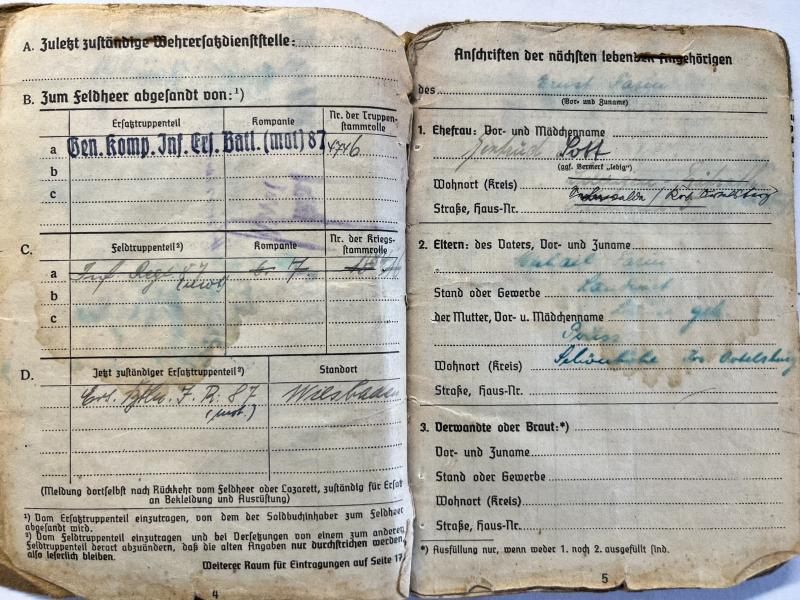 A. Zuletzt zuständige Wehrersatzdienststelle:
B. Zum Feldheer abgesandt von:¹)
Ersatztruppenteil Kompanie Nr. der Truppen-
stammrolle
a Gen. Komp. Inf. Ers. Batl. (mot) 87 4746
b
c
C. Feldtruppenteil²) Kompanie Nr. der Kriegs-
stammrolle
a Inf Reg 87 7.
b
c
D. Jetzt zuständiger Ersatztruppenteil²) Standort
Ers. Btln. I. R. 87 Wiesbaden
(mot.)
(Meldung dortselbst nach Rückkehr vom Feldheer oder Lazarett, zuständig für Ersatz
an Bekleidung und Ausrüstung)
¹) Vom Ersatztruppenteil einzutragen, von dem der Soldbuchinhaber zum Feldheer
abgesandt wird.
²) Vom Feldtruppenteil einzutragen und bei Versetzungen von einem zum anderen
Feldtruppenteil derart abzuändern, daß die alten Angaben nur durchstrichen werden,
also leserlich bleiben.
Weiterer Raum für Eintragungen auf Seite 17.
4
Anschriften der nächsten lebenden Angehörigen
des Ernst
(Vor- und Zuname)
1. Ehefrau: Vor- und Mädchenname
Gertrud
(ggf. Vermerk „ledig")
Wohnort (Kreis)
Straße, Haus-Nr.
2. Eltern: des Vaters, Vor- und Zuname
Michael
Stand oder Gewerbe Landwirt
der Mutter, Vor- u. Mädchenname geb.
Wohnort (Kreis) Ortelsburg
Straße, Haus-Nr.
3. Verwandte oder Braut:*)
Vor- und Zuname
Stand oder Gewerbe
Wohnort (Kreis)
Straße, Haus-Nr.
*) Ausfüllung nur, wenn weder 1. noch 2. ausgefüllt sind.
5